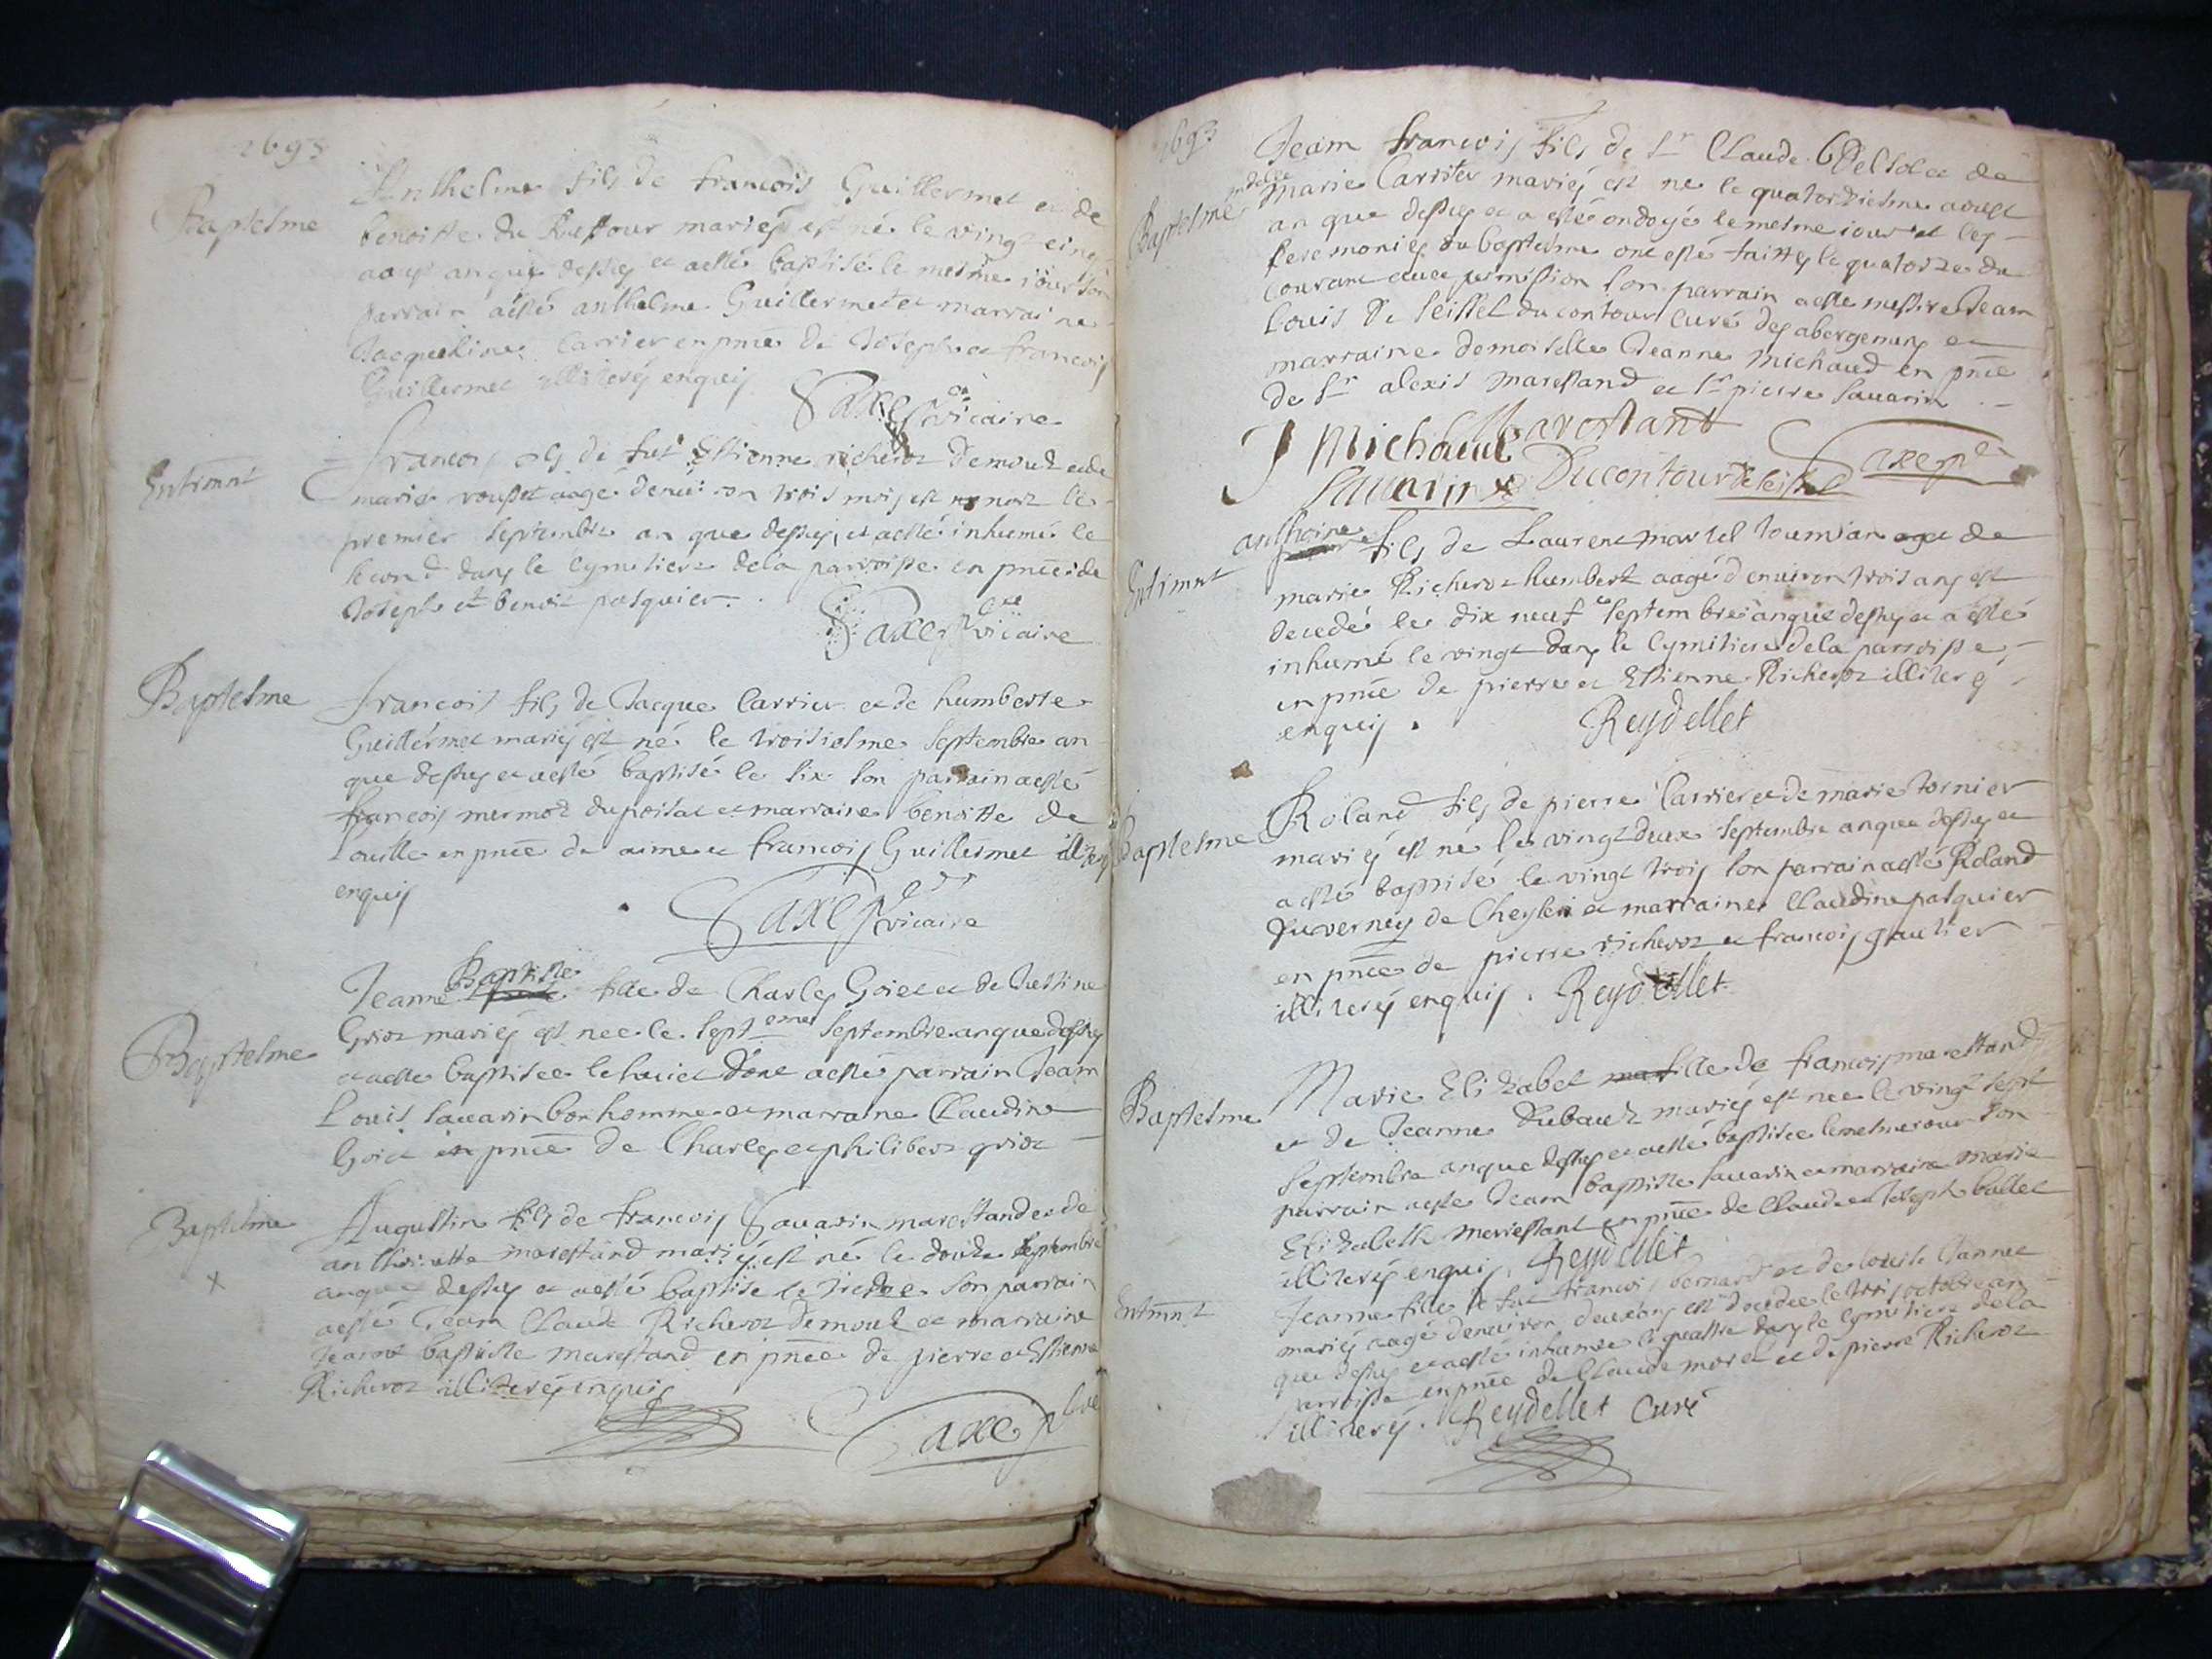 1693
Baptesme
Anthelme fils de francois Guillermet et de
benoitte du mariés est né le vingt cinq
aoust an que dessus et a esté baptisé le mesme iour son
parrain a esté anthelme Guillermet et marraine
Jacqueline Carrier en pnce de Joseph et francois
Guillermet illiterés enquis
Saxe vicaire
Entrmnt
francois fils de fut Estienne richerot et de
marie rousset aagé denviron trois mois est mort le
premier septembre an que dessus, et a esté inhumé le
second dans le cymitiere de la parroisse en pnce de
Joseph et benoit pasquier
Saxe vicaire
Baptesme
francois fils de Jacque Carrier et de humberte
Guillermet mariés est né le troisiesme septembre an
que dessus et a esté baptisé le six son parrain a esté
francois mermot du poisat et marraine benoitte de
Louille en pnce de aime et francois Guillermet illiterés
enquis
Saxe vicaire
Baptesme
Jeanne Baptiste fille de Charles Goiet et de Justine
Griot mariés est nee le septieme septembre an que dessus
et a esté baptisee le huict dont a esté parrain Jean
Louis sauarin bonhomme et marraine Claudine
Goiet en pnce de Charles et philibert griot
Baptesme
x
Augustin fils de francois Sauarin marestand et de
anthoinette marestand mariés est né le douze septembre
an que dessus et a esté baptisé le treize son parrain
a esté Jean Claude Richerot et marraine
Jeanne baptiste marestand en pnce de pierre et Estienne
Richerot illiterés enquis
Saxe pbre
1693
Baptesme
Jean francois fils de Sr Claude et de
mdelle marie Carrier mariés est né le quatorziesme aoust
an que dessus et a esté ondoyé le mesme iour et les
seremonies du baptesme ont esté faittes le quatorze du
courant avec permission son parrain a esté messire Jean
Louis De Seissel du contour curé des abergemens et
marraine demoiselle Jeanne michaud en pnce
de Sr alexis marestand et Sr pierre sauarin
J Michaud Marestant
Sauarin Ducontour de seissel Saxe
Entrmnt
anthoine fils de Laurent martel tournian et de
marie Richerot humbert aagé denviron trois ans est
decedé le dix neuf septembre an que dessus et a esté
inhumé le vingt dans le cymitiere de la parroisse
en pnce de pierre et Estienne Richerot illiterés
enquis.
Reydellet
Baptesme
Roland fils de pierre Carrier et de marie tornier
mariés est né le vingt deux septembre an que dessus et
a esté baptisé le vingt trois son parrain a esté Roland
Duverney de et marraine Claudine pasquier
en pnce de pierre richerot et francois gautier
illiterés enquis. Reydellet
Baptesme
Marie Elizabet fille de francois marestand
et de Jeanne Dubault mariés est nee le vingt sept
septembre an que dessus et a esté baptisee le mesme iour son
parrain a esté Jean baptiste sauarin et marraine marie
Elizabeth merestant en pnce de Claude et Joseph ballet
illiterés enquis. Reydellet
Entrmnt
Jeanne fille de fut francois bernard et de louise
mariés aagé denviron deux ans est decedee le trois octobre an
que dessus et a esté inhumée le quattre dans le cymitiere de la
parroisse en pnce de Claude morel et de pierre Richerot
illiterés. Reydellet Curé